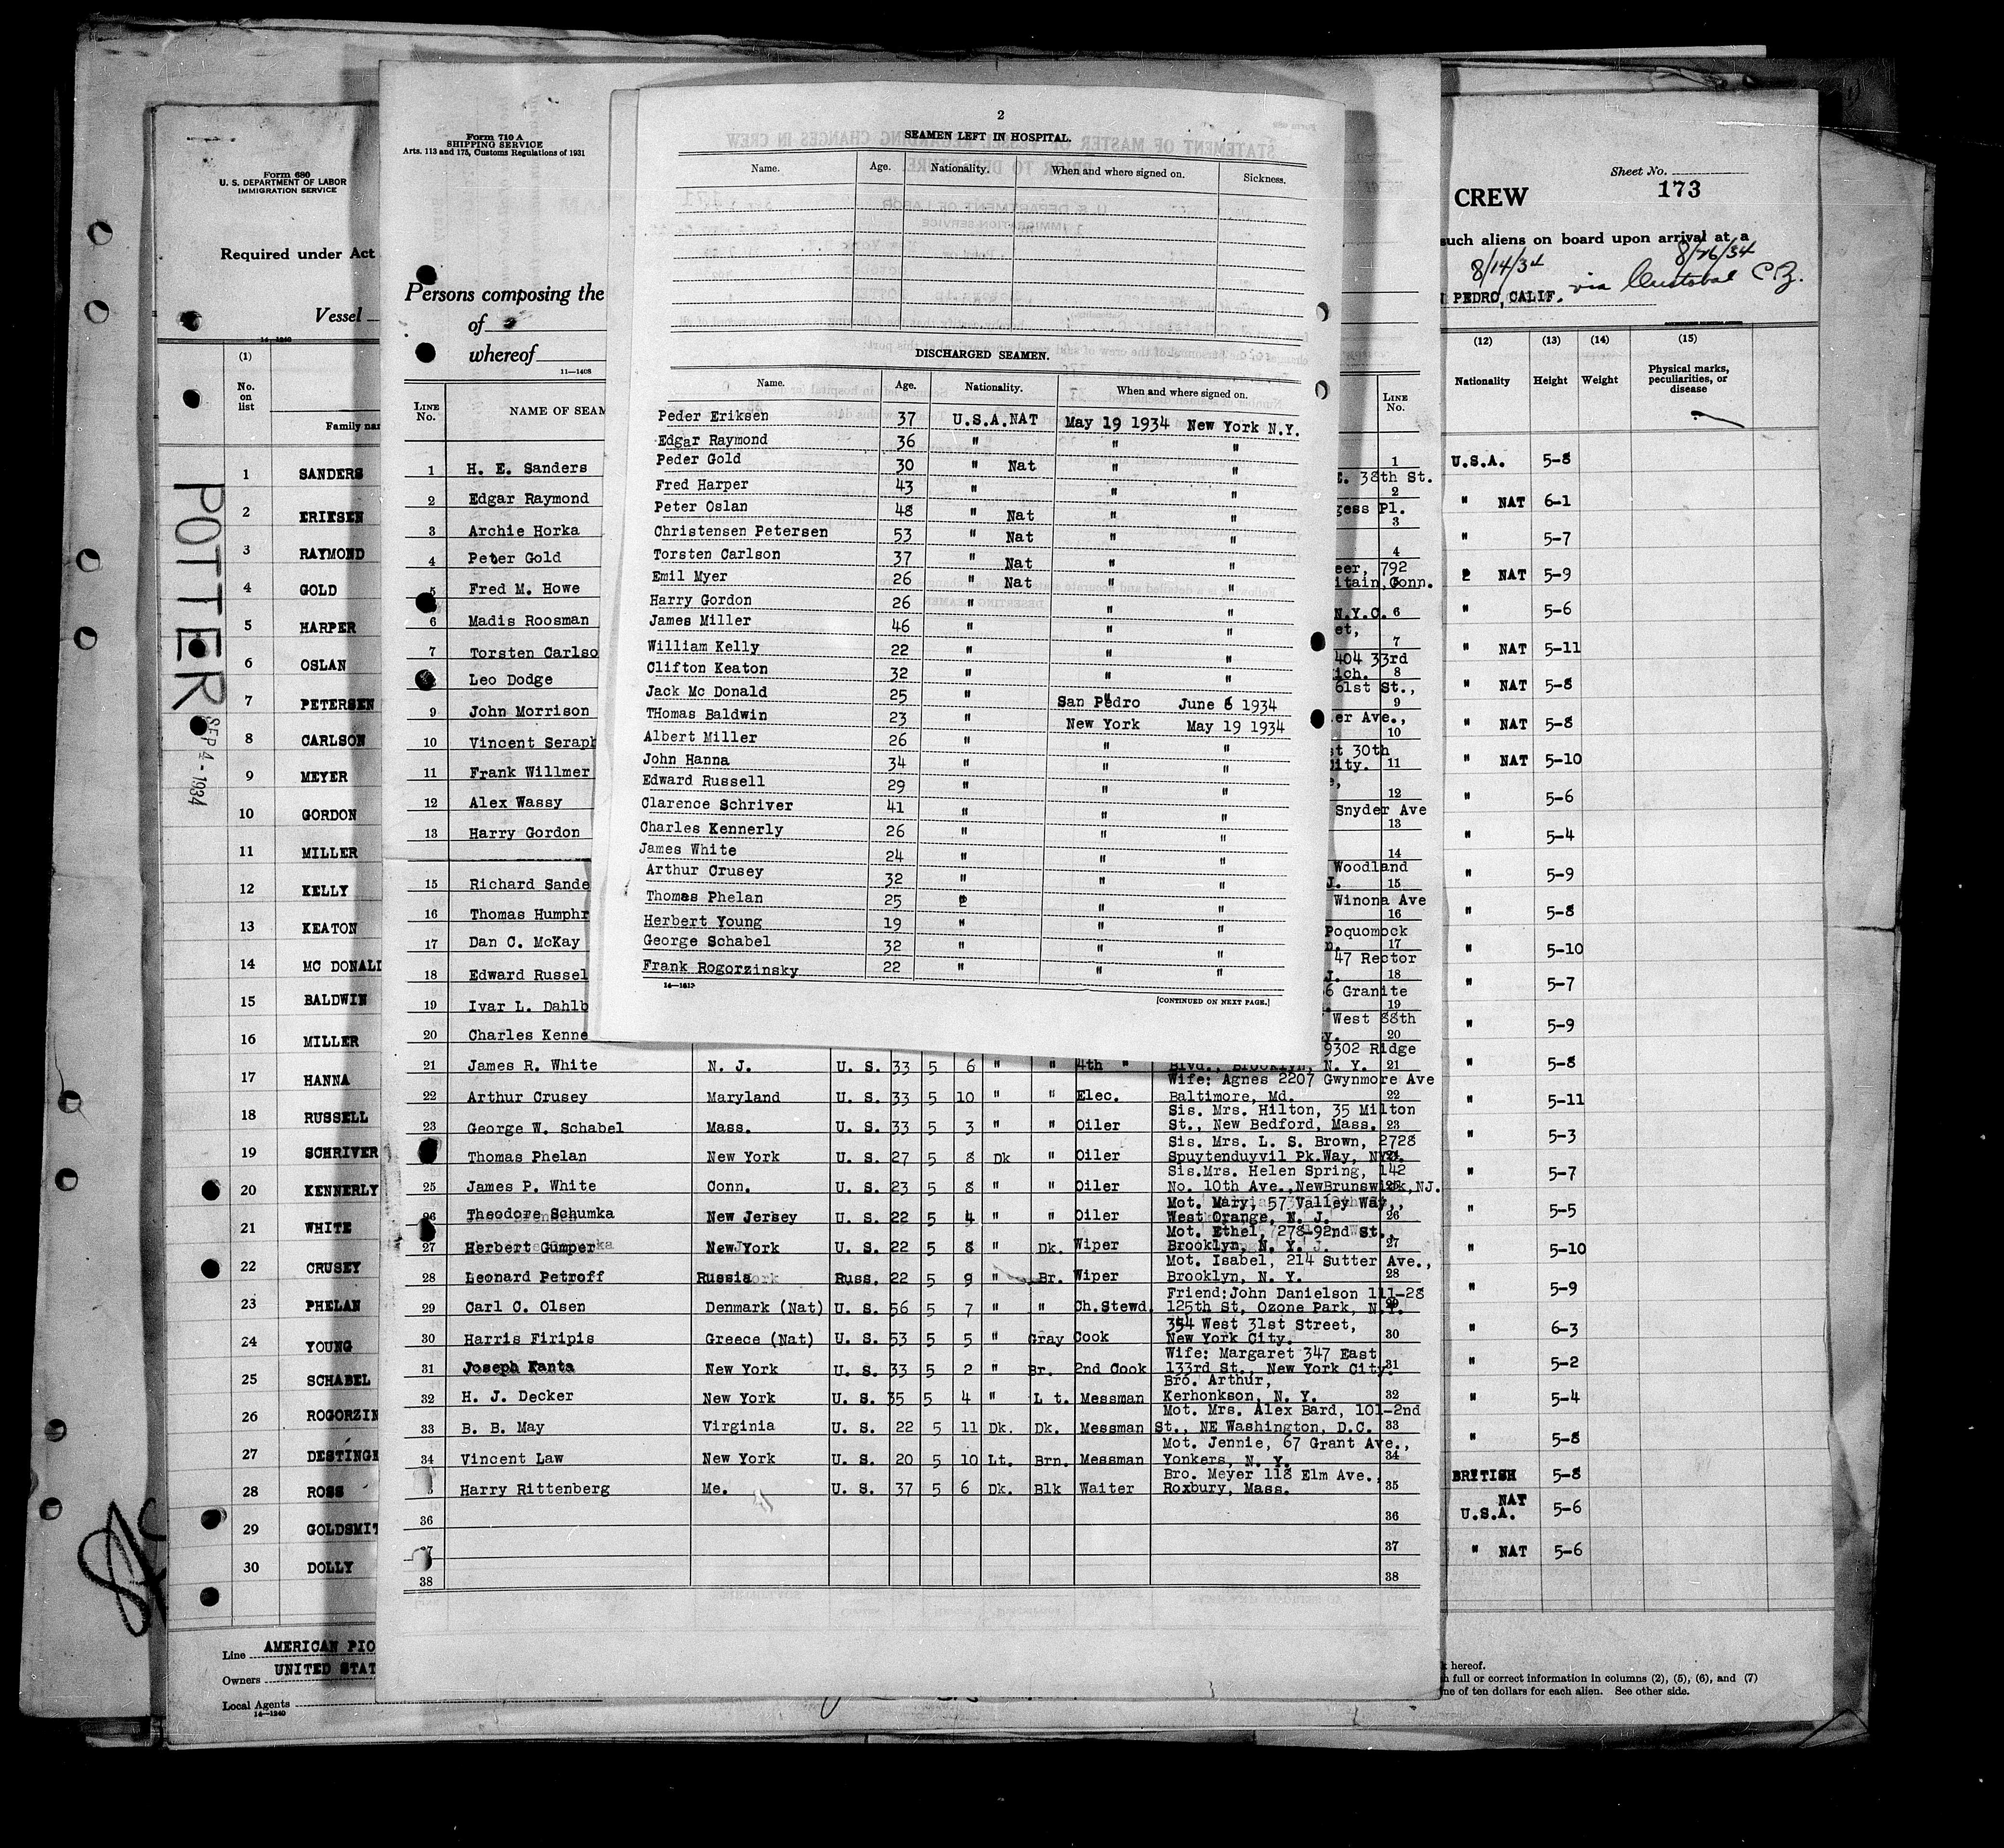 2
SEAMEN LEFT IN HOSPITAL.
Name. Age. Nationality. When and where signed on. Sickness.
DISCHARGED SEAMEN.
Name. Age. Nationality. When and where signed on.
Peder Eriksen 37 U.S.A.NAT May 19 1934 New York N.Y.
Edgar Raymond 36 " " "
Peder Gold 30 " Nat " "
Fred Harper 43 " " "
Peter Oslan 48 " Nat " "
Christensen Petersen 53 " Nat " "
Torsten Carlson 37 " Nat " "
Emil Myer 26 " Nat " "
Harry Gordon 26 " " "
James Miller 46 " " "
William Kelly 22 " " "
Clifton Keaton 32 " " "
Jack Mc Donald 25 " San Pedro June 6 1934
THomas Baldwin 23 " New York May 19 1934
Albert Miller 26 " " "
John Hanna 34 " " "
Edward Russell 29 " " "
Clarence Schriver 41 " " "
Charles Kennerly 26 " " "
James White 24 " " "
Arthur Crusey 32 " " "
Thomas Phelan 25 " "
Herbert Young 19 " " "
George Schabel 32 " " "
Frank Rogorzinsky 22 " " "
14—1613
[CONTINUED ON NEXT PAGE.]
Form 710 A
SHIPPING SERVICE
Arts. 113 and 175, Customs Regulations of 1931
Persons composing the
of
whereof
11—1408
LINE No. NAME OF SEAM LINE No.
1 H. E. Sanders 1
E. 38th St.
2 Edgar Raymond 2
gess Pl.
3 Archie Horka 3
4 Peter Gold 4
eer, 792
5 Fred M. Howe itain, Conn.
6 Madis Roosman N.Y.C. 6
et,
7 Torsten Carlso 7
404 33rd
Leo Dodge ich. 8
61st St.,
9 John Morrison 9
er Ave.,
10 Vincent Seraph 10
st 30th
11 Frank Willmer City. 11
12 Alex Wassy 12
Snyder Ave
13 Harry Gordon 13
14
Woodland
15 Richard Sande J. 15
Winona Ave
16 Thomas Humphr 16
Poquomock
17 Dan C. McKay n. 17
47 Rector
18 Edward Russel J. 18
6 Granite
19 Ivar L. Dahlb 19
West 88th
20 Charles Kenne y. 20
9302 Ridge
21 James R. White N. J. U. S. 33 5 6 " " 4th " Blvd., Brooklyn, N. Y. 21
Wife: Agnes 2207 Gwynmore Ave
22 Arthur Crusey Maryland U. S. 33 5 10 " " Elec. Baltimore, Md. 22
Sis. Mrs. Hilton, 35 Milton
23 George W. Schabel Mass. U. S. 33 5 3 " " Oiler St., New Bedford, Mass. 23
Sis. Mrs. L. S. Brown, 2728
Thomas Phelan New York U. S. 27 5 8 Dk " Oiler Spuytenduyvil Pk.Way, NYC.
Sis.Mrs. Helen Spring, 142
25 James P. White Conn. U. S. 23 5 8 " " Oiler No. 10th Ave.,NewBrunswick,NJ.
Mot. Mary, 57 Valley Way,
26 Theodore Schumka New Jersey U. S. 22 5 4 " " Oiler West Orange, N. J. 26
Mot. Ethel, 278-92nd St.,
27 Herbert Gumper New York U. S. 22 5 8 " Dk. Wiper Brooklyn, N. Y. 27
Mot. Isabel, 214 Sutter Ave.,
28 Leonard Petroff Russia Russ. 22 5 9 " Br. Wiper Brooklyn, N. Y. 28
Friend:John Danielson 111-28
29 Carl C. Olsen Denmark (Nat) U. S. 56 5 7 " " Ch.Stewd. 125th St, Ozone Park, N.Y.
354 West 31st Street,
30 Harris Firipis Greece (Nat) U. S. 53 5 5 " Gray Cook New York City. 30
Wife: Margaret 347 East
31 Joseph Kanta New York U. S. 33 5 2 " Br. 2nd Cook 133rd St., New York City. 31
Bro. Arthur,
32 H. J. Decker New York U. S. 35 5 4 " L t. Messman Kerhonkson, N. Y. 32
Mot. Mrs. Alex Bard, 101-2nd
33 B. B. May Virginia U. S. 22 5 11 Dk. Dk. Messman St., NE Washington, D.C. 33
Mot. Jennie, 67 Grant Ave.,
34 Vincent Law New York U. S. 20 5 10 Lt. Brn. Messman Yonkers, N. Y. 34
Bro. Meyer 118 Elm Ave.,
Harry Rittenberg Me. U. S. 37 5 6 Dk. Blk Waiter Roxbury, Mass. 35
36 36
37
38 38
Form 680
U. S. DEPARTMENT OF LABOR
IMMIGRATION SERVICE
Required under Act
Vessel
14—1240
(1)
No. on list
Family nam
1 SANDERS
2 ERIKSEN
3 RAYMOND
4 GOLD
5 HARPER
6 OSLAN
7 PETERSEN
8 CARLSON
9 MEYER
10 GORDON
11 MILLER
12 KELLY
13 KEATON
14 MC DONALD
15 BALDWIN
16 MILLER
17 HANNA
18 RUSSELL
19 SCHRIVER
20 KENNERLY
21 WHITE
22 CRUSEY
23 PHELAN
24 YOUNG
25 SCHABEL
26 ROGORZIN
27 DESTINGH
28 ROSS
29 GOLDSMIT
30 DOLLY
POTTER
SEP 4 - 1934
Line AMERICAN PIO
Owners UNITED STAT
Local Agents
14—1240
CREW
Sheet No.
173
such aliens on board upon arrival at a
8/14/34 8/26/34
N PEDRO, CALIF. via Cristobal C.Z.
(12) (13) (14) (15)
Nationality Height Weight Physical marks, peculiarities, or disease
U.S.A. 5-8
" NAT 6-1
" 5-7
NAT 5-9
" 5-6
" NAT 5-11
" NAT 5-8
" NAT 5-8
" NAT 5-10
" 5-6
" 5-4
" 5-9
" 5-8
" 5-10
" 5-7
" 5-9
" 5-8
" 5-11
" 5-3
" 5-7
" 5-5
" 5-10
" 5-9
" 6-3
" 5-2
" 5-4
" 5-8
BRITISH 5-8
U.S.A. NAT 5-6
" NAT 5-6
hereof.
full or correct information in columns (2), (5), (6), and (7)
ne of ten dollars for each alien. See other side.